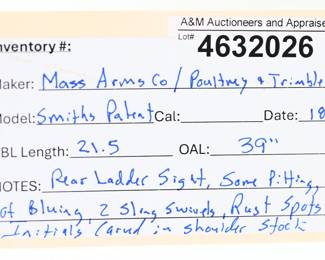 A&M Auctioneers and Appraise
Lot# 4632026
nventory #:
Maker: Mass Arms Co / Poultney & Trimble
Model: Smiths Patent Cal: Date: 18
BL Length: 21.5 OAL: 39"
NOTES: Rear Ladder Sight, Some Pitting,
of Bluing, 2 Sling Swivels, Rust Spots
Initials Carved in shoulder Stock